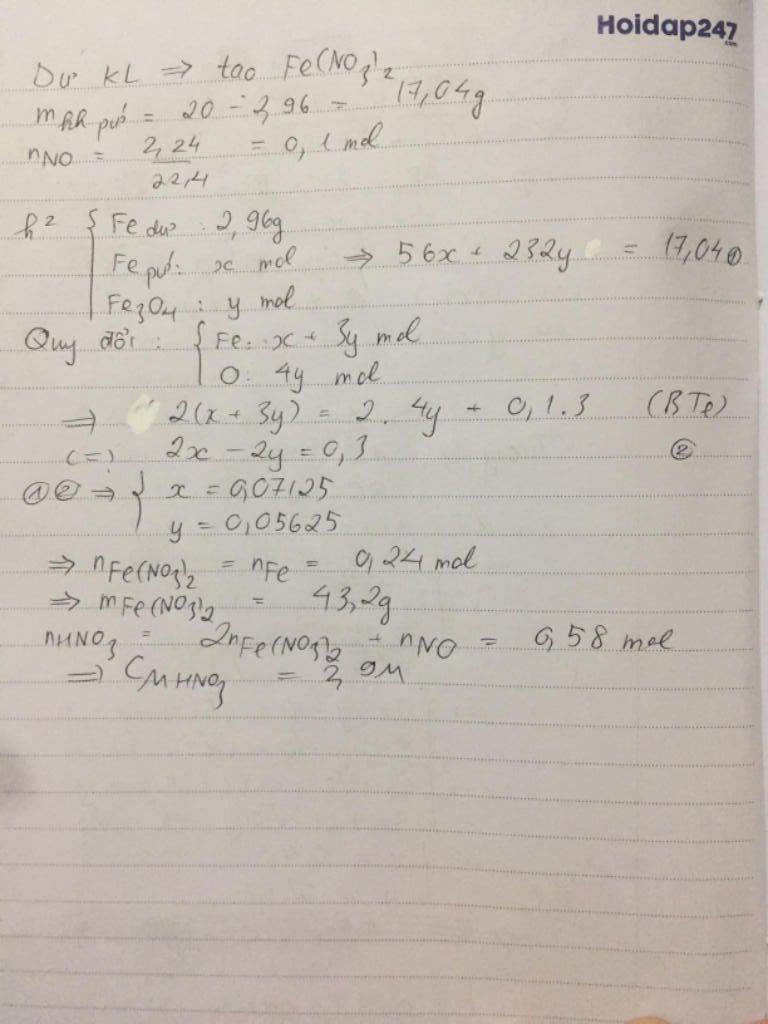 Hoidap247
.com
Dư KL => tạo Fe(NO3)2
mhh pứ = 20 - 2,96 = 17,04g
nNO = 2,24 / 22,4 = 0,1 mol
h2 { Fe dư : 2,96g
Fe pứ: x mol => 56x + 232y = 17,04 ①
Fe3O4 : y mol
Quy đổi : { Fe: x + 3y mol
O: 4y mol
=> 2(x + 3y) = 2. 4y + 0,1.3 (BTe)
(=) 2x - 2y = 0,3 ②
①② => { x = 0,07125
y = 0,05625
=> nFe(NO3)2 = nFe = 0,24 mol
=> mFe(NO3)2 = 43,2g
nHNO3 = 2nFe(NO3)2 + nNO = 0,58 mol
=> CM HNO3 = 2,9M